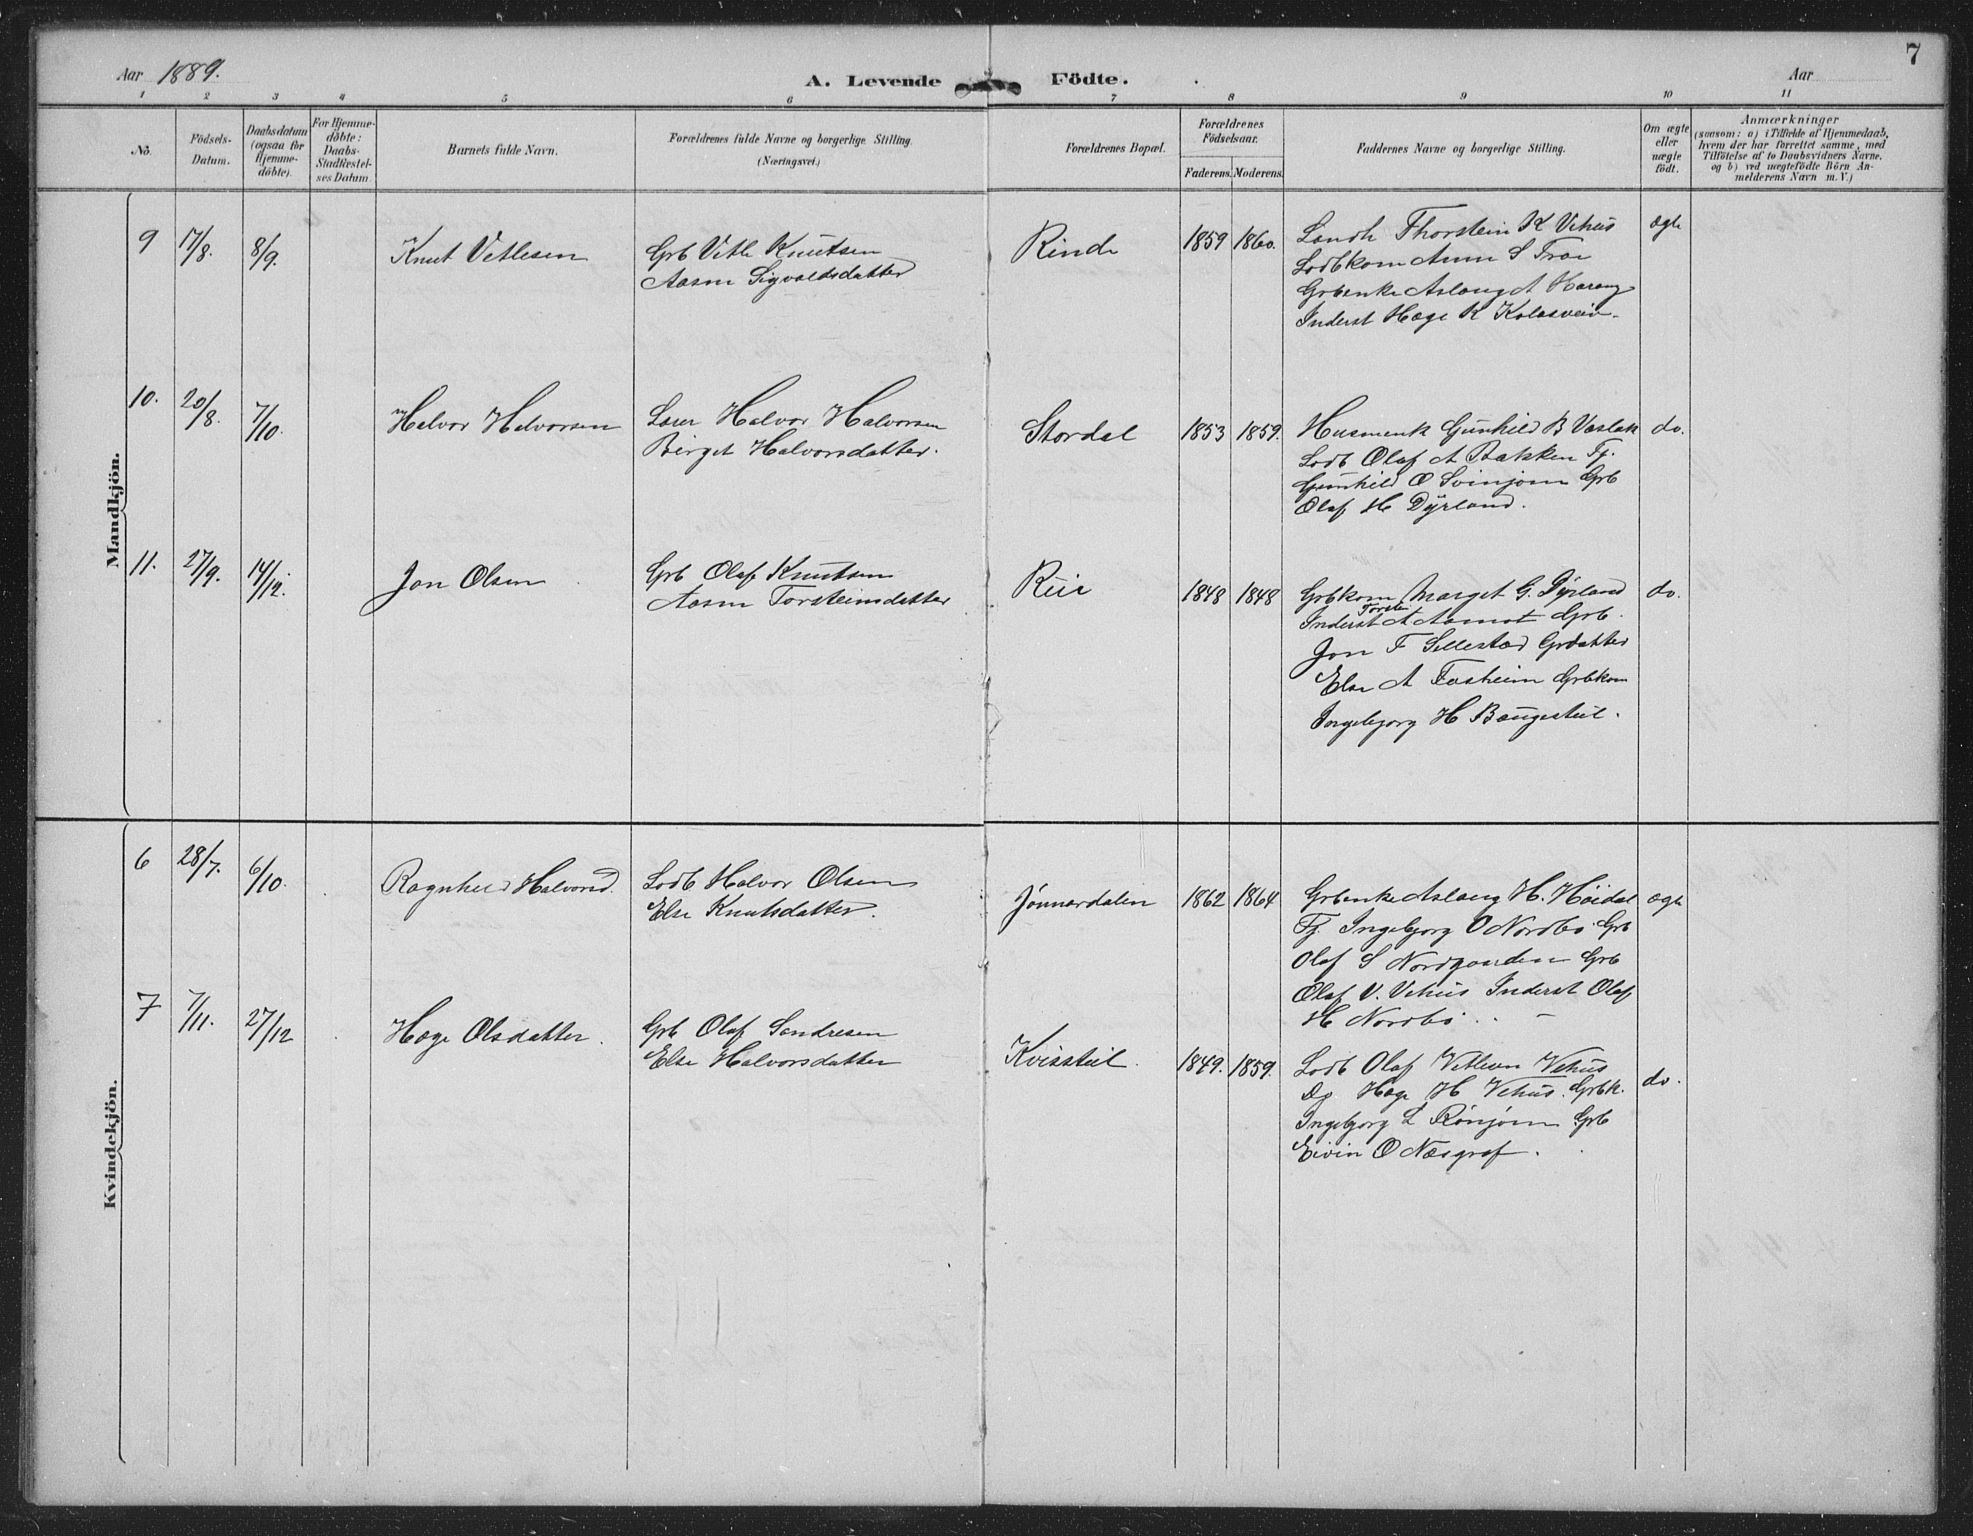 Aar 1889.
A. Levende Födte.
Aar
7
1 2 3 4 5 6 7 8 9 10 11
No.
Födsels-
Datum.
Daabsdatum
(ogsaa for
Hjemme-
döbte).
For Hjemme-
döbte:
Daabs-
Stadfæstel-
ses Datum.
Barnets fulde Navn.
Forældrenes fulde Navne og borgerlige Stilling.
(Næringsvei.)
Forældrenes Bopæl.
Forældrenes
Födselsaar.
Faderens. Moderens.
Faddernes Navne og borgerlige Stilling.
Om ægte
eller
uægte
födt.
Anmærkninger
(saasom: a) i Tilfælde af Hjemmedaab,
hvem der har forrettet samme, med
Tilföielse af to Daabsvidners Navne,
og b) ved uægtefödte Börn An-
melderens Navn m. V.)
Mandkjön.
9 17/8. 8/9. Knut Vetlesen
Grb Vetle Knutsen
Aasne Sigvaldsdatter
Rinde 1859 1860.
Landh Thorstein K Vehus
Lodbkom Anne S Troe
Grbenke Aslaug A Harang
Inderst Hæge K Kolosvein.
ægte
10. 20/8. 7/10. Halvor Halvorsen
Lærer Halvor Halvorsen
Birget Halvorsdatter.
Stordal 1853 1859.
Husmenk Gunhild B Vaslak
Lodb Olaf A Bakken Tj.
Gunhild O Svinjom Grb
Olaf H Dyrland.
do.
11. 27/9. 14/12. Jon Olsen
Grb Olaf Knutsen
Aasne Torsteinsdatter
Rue 1848 1848
Grbkom Marget G. Dyrland
Torstei
Inderst A Aamot Grb.
Jon T Sellestad Grdatter
Else A Fosheim Grbkom
Ingebjorg H Baugestul.
do.
Kvindekjön.
6 28/7. 6/10. Ragnhild Halvorsd.
Lodb Halvor Olsen
Else Knutsdatter.
Jönnardalen 1862 1864
Grbenke Aslaug H. Höidal
Tj. Ingebjorg O Nordbö Grb
Olaf S Nordgarden Grb
Olaf V. Vehus Inderst Olaf
H Nordbö.
ægte
7 7/11. 27/12 Hæge Olsdatter.
Grb Olaf Sondresen
Else Halvorsdatter
Kvisstul. 1849. 1859.
Lodb Olaf Vetlesen Vehus
Dg Hæge H Vehus. Grbk.
Ingebjorg L Rönjom Grb
Eivin O Næsgraf.
do.